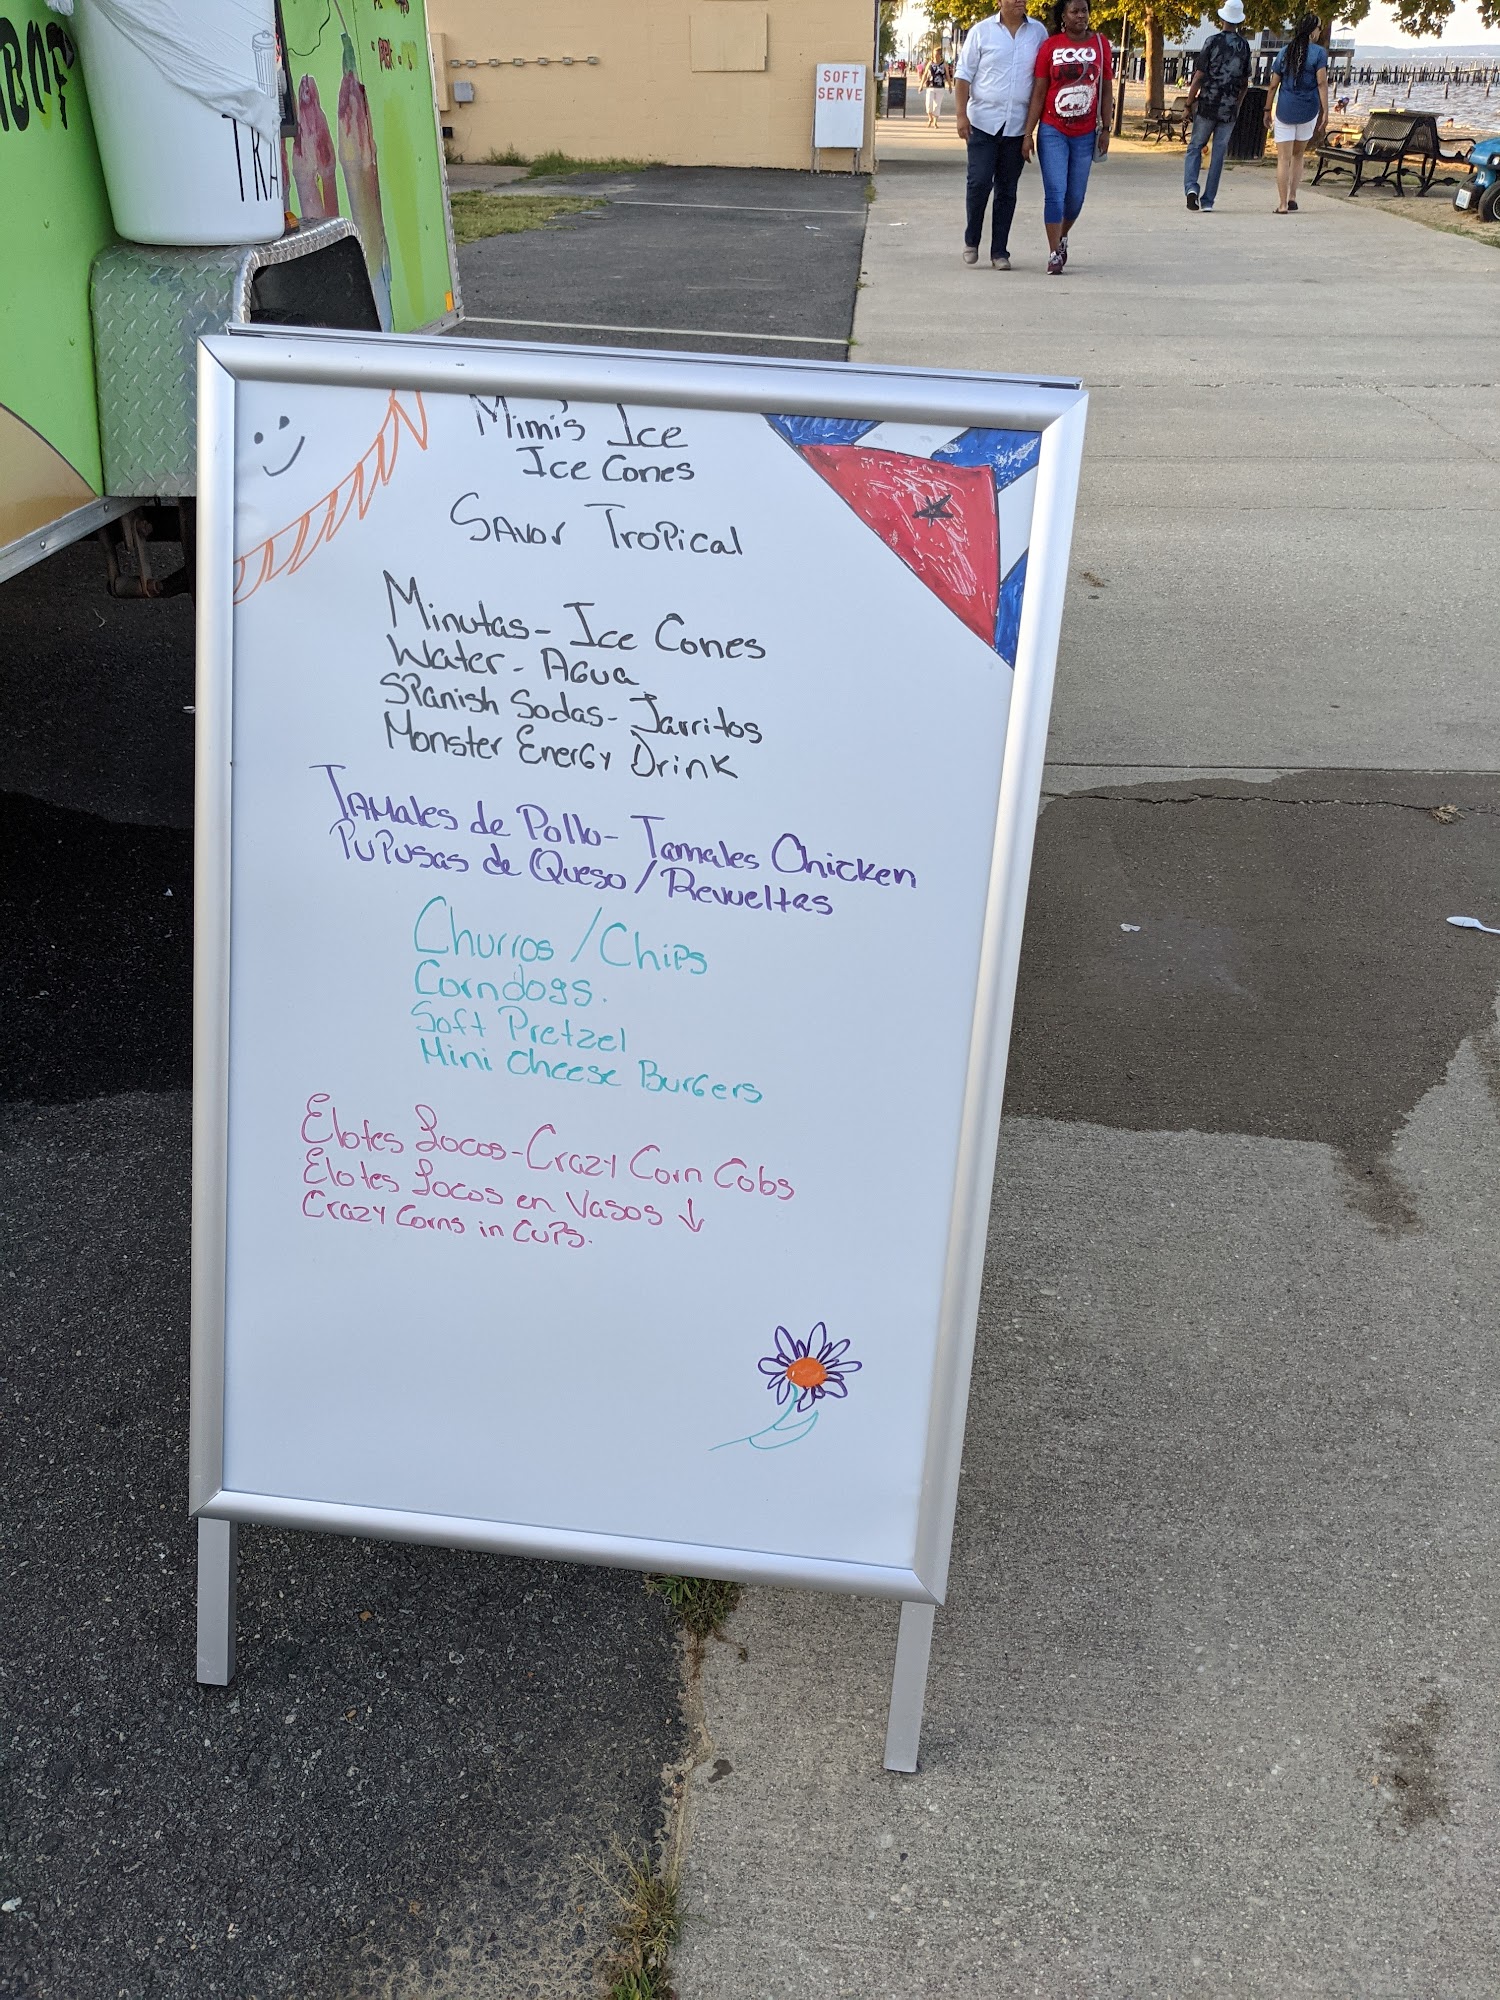 TRA
SOFT
SERVE
ECKO
Mimi's Ice
Ice Cones
Savor Tropical
Minutas- Ice Cones
Water- Agua
Spanish Sodas- Jarritos
Monster Energy Drink
Tamales de Pollo- Tamales Chicken
Pupusas de Queso/Revueltas
Churros/Chips
Corndogs.
Soft Pretzel
Mini Cheese Burgers
Elotes Locos-Crazy Corn Cobs
Elotes Locos en Vasos ↓
Crazy Corns in Cups.